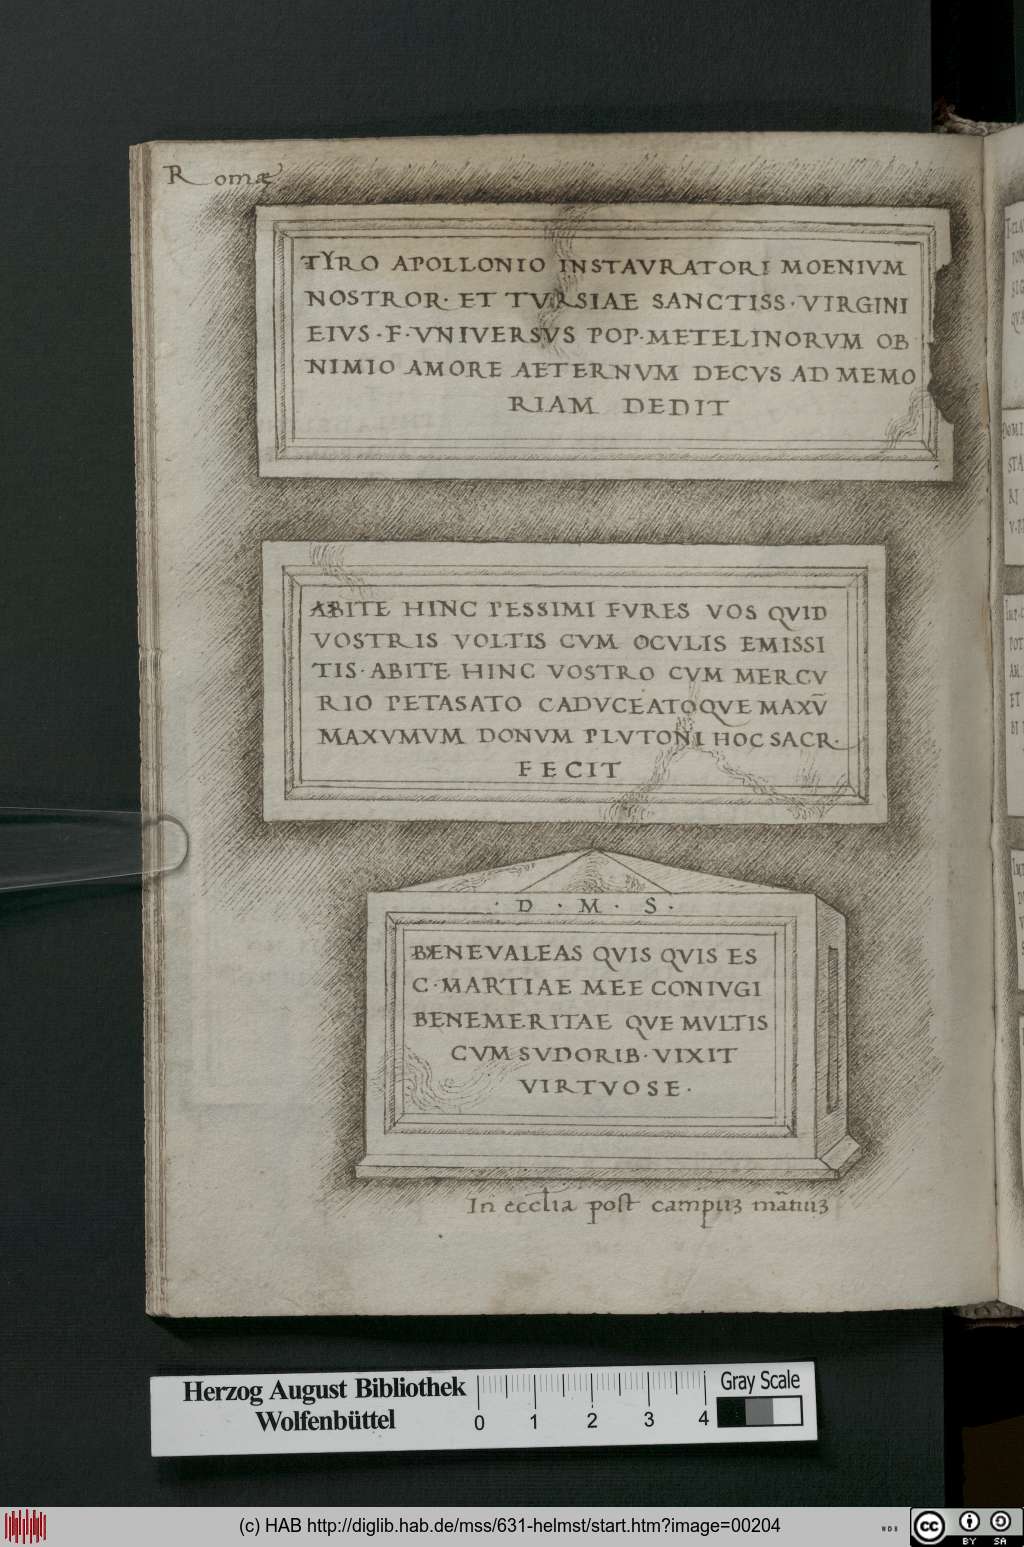 Romæ
TYRO APOLLONIO INSTAVRATORI MOENIVM
NOSTROR· ET TVRSIAE SANCTISS·VIRGINI
EIVS·F·VNIVERSVS POP·METELINORVM OB
NIMIO AMORE AETERNVM DECVS AD MEMO
RIAM DEDIT
ABITE HINC PESSIMI FVRES VOS QVID
VOSTRIS VOLTIS CVM OCVLIS EMISSI
TIS·ABITE HINC VOSTRO CVM MERCV
RIO PETASATO CADVCEATOQVE MAXV̄
MAXVMVM DONVM PLVTONI HOC SACR·
FECIT
·D·M·S·
BENEVALEAS QVIS QVIS ES
C·MARTIAE MEE CONIVGI
BENEMERITAE QVE MVLTIS
CVM SVDORIB·VIXIT
VIRTVOSE·
In eccl̄ia post campuʒ
Herzog August Bibliothek
Wolfenbüttel
0 1 2 3 4
Gray Scale
(c) HAB http://diglib.hab.de/mss/631-helmst/start.htm?image=00204
WDB
cc
BY SA